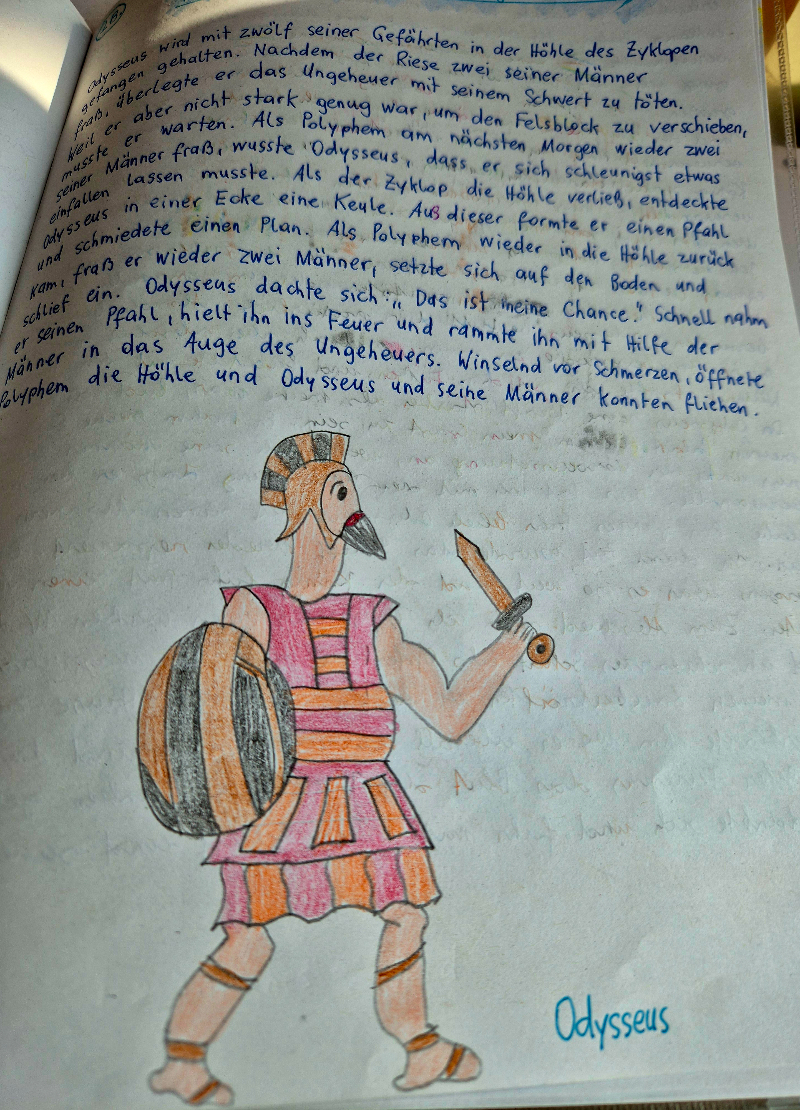 Odysseus wird mit zwölf seiner Gefährten in der Höhle des Zyklopen
gefangen gehalten. Nachdem der Riese zwei seiner Männer
fraß, überlegte er das Ungeheuer mit seinem Schwert zu töten.
Weil er aber nicht stark genug war, um den Felsblock zu verschieben,
musste er warten. Als Polyphem am nächsten Morgen wieder zwei
seiner Männer fraß, wusste Odysseus, dass er sich schleunigst etwas
einfallen lassen musste. Als der Zyklop die Höhle verließ, entdeckte
Odysseus in einer Ecke eine Keule. Auß dieser formte er einen Pfahl
und schmiedete einen Plan. Als Polyphem wieder in die Höhle zurück
kam, fraß er wieder zwei Männer, setzte sich auf den Boden und
schlief ein. Odysseus dachte sich: „Das ist meine Chance." Schnell nahm
er seinen Pfahl, hielt ihn ins Feuer und rammte ihn mit Hilfe der
Männer in das Auge des Ungeheuers. Winselnd vor Schmerzen, öffnete
Polyphem die Höhle und Odysseus und seine Männer konnten fliehen.
Odysseus